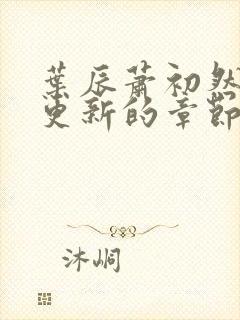 葉辰蕭初然
更新的章節
沐峒